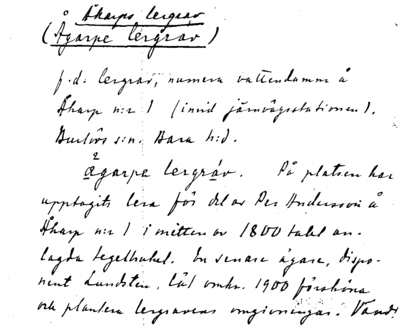 Åkarps lergrav
(Ågarpe lergrav)
f.d. lergrav, numera vattendamm å
Åkarp n:r 1 (invid järnvägsstationen).
Burlövs s:n. Bara h:d.
ågarpe lergráv. På platsen har
upptagits lera för det av Per Andersson å
Åkarp n:r 1 i mitten av 1800 talet an-
lagda tegelbruket. En senare ägare, dispo-
nent Lundsten, lät omkr. 1900 försköna
och plantera lergravens omgivningar.